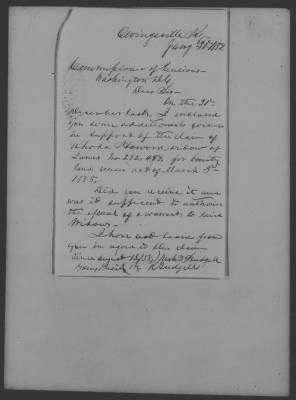 Owingsville Ky
Jany 31st 1852
Commissioner of Pensions
Washington D.C.
Dear Sir
On the 31st
December last I enclosed
you some additional evidence
in support of the claim of
Rhoda Howard widow of
James No. 212.482 for bounty
land under act of March 3d
1855.
Did you receive it and
was it sufficient to authorize
the issual of a warrant to said
Widow.
I have not heard from
you in regard to this claim
since August
Gudgell